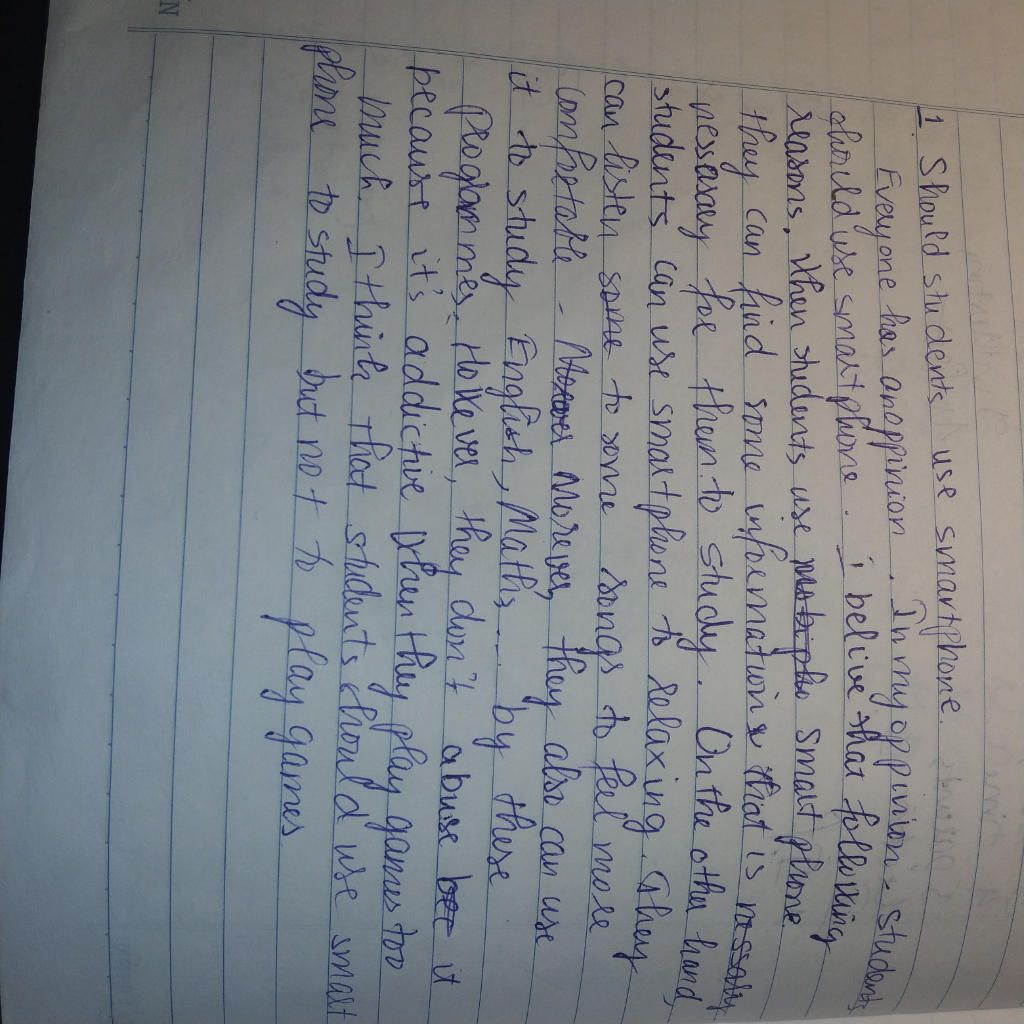 1. Should students use smartphone.
Everyone has anoppinion. In my oppinion, students
should use smartphone. I belive that following
reasons. When students use smart phone
they can find some information that is nessessary
nessesary for them to study. On the other hand,
students can use smartphone to relaxing. They
can listen some to some songs to feel more
comfortable. Morever, they also can use
it to study English, Maths... by these
programmes. However, they don't abuse it
because it's addictive when they play games too
much. I think that students should use smart
phone to study but not to play games.